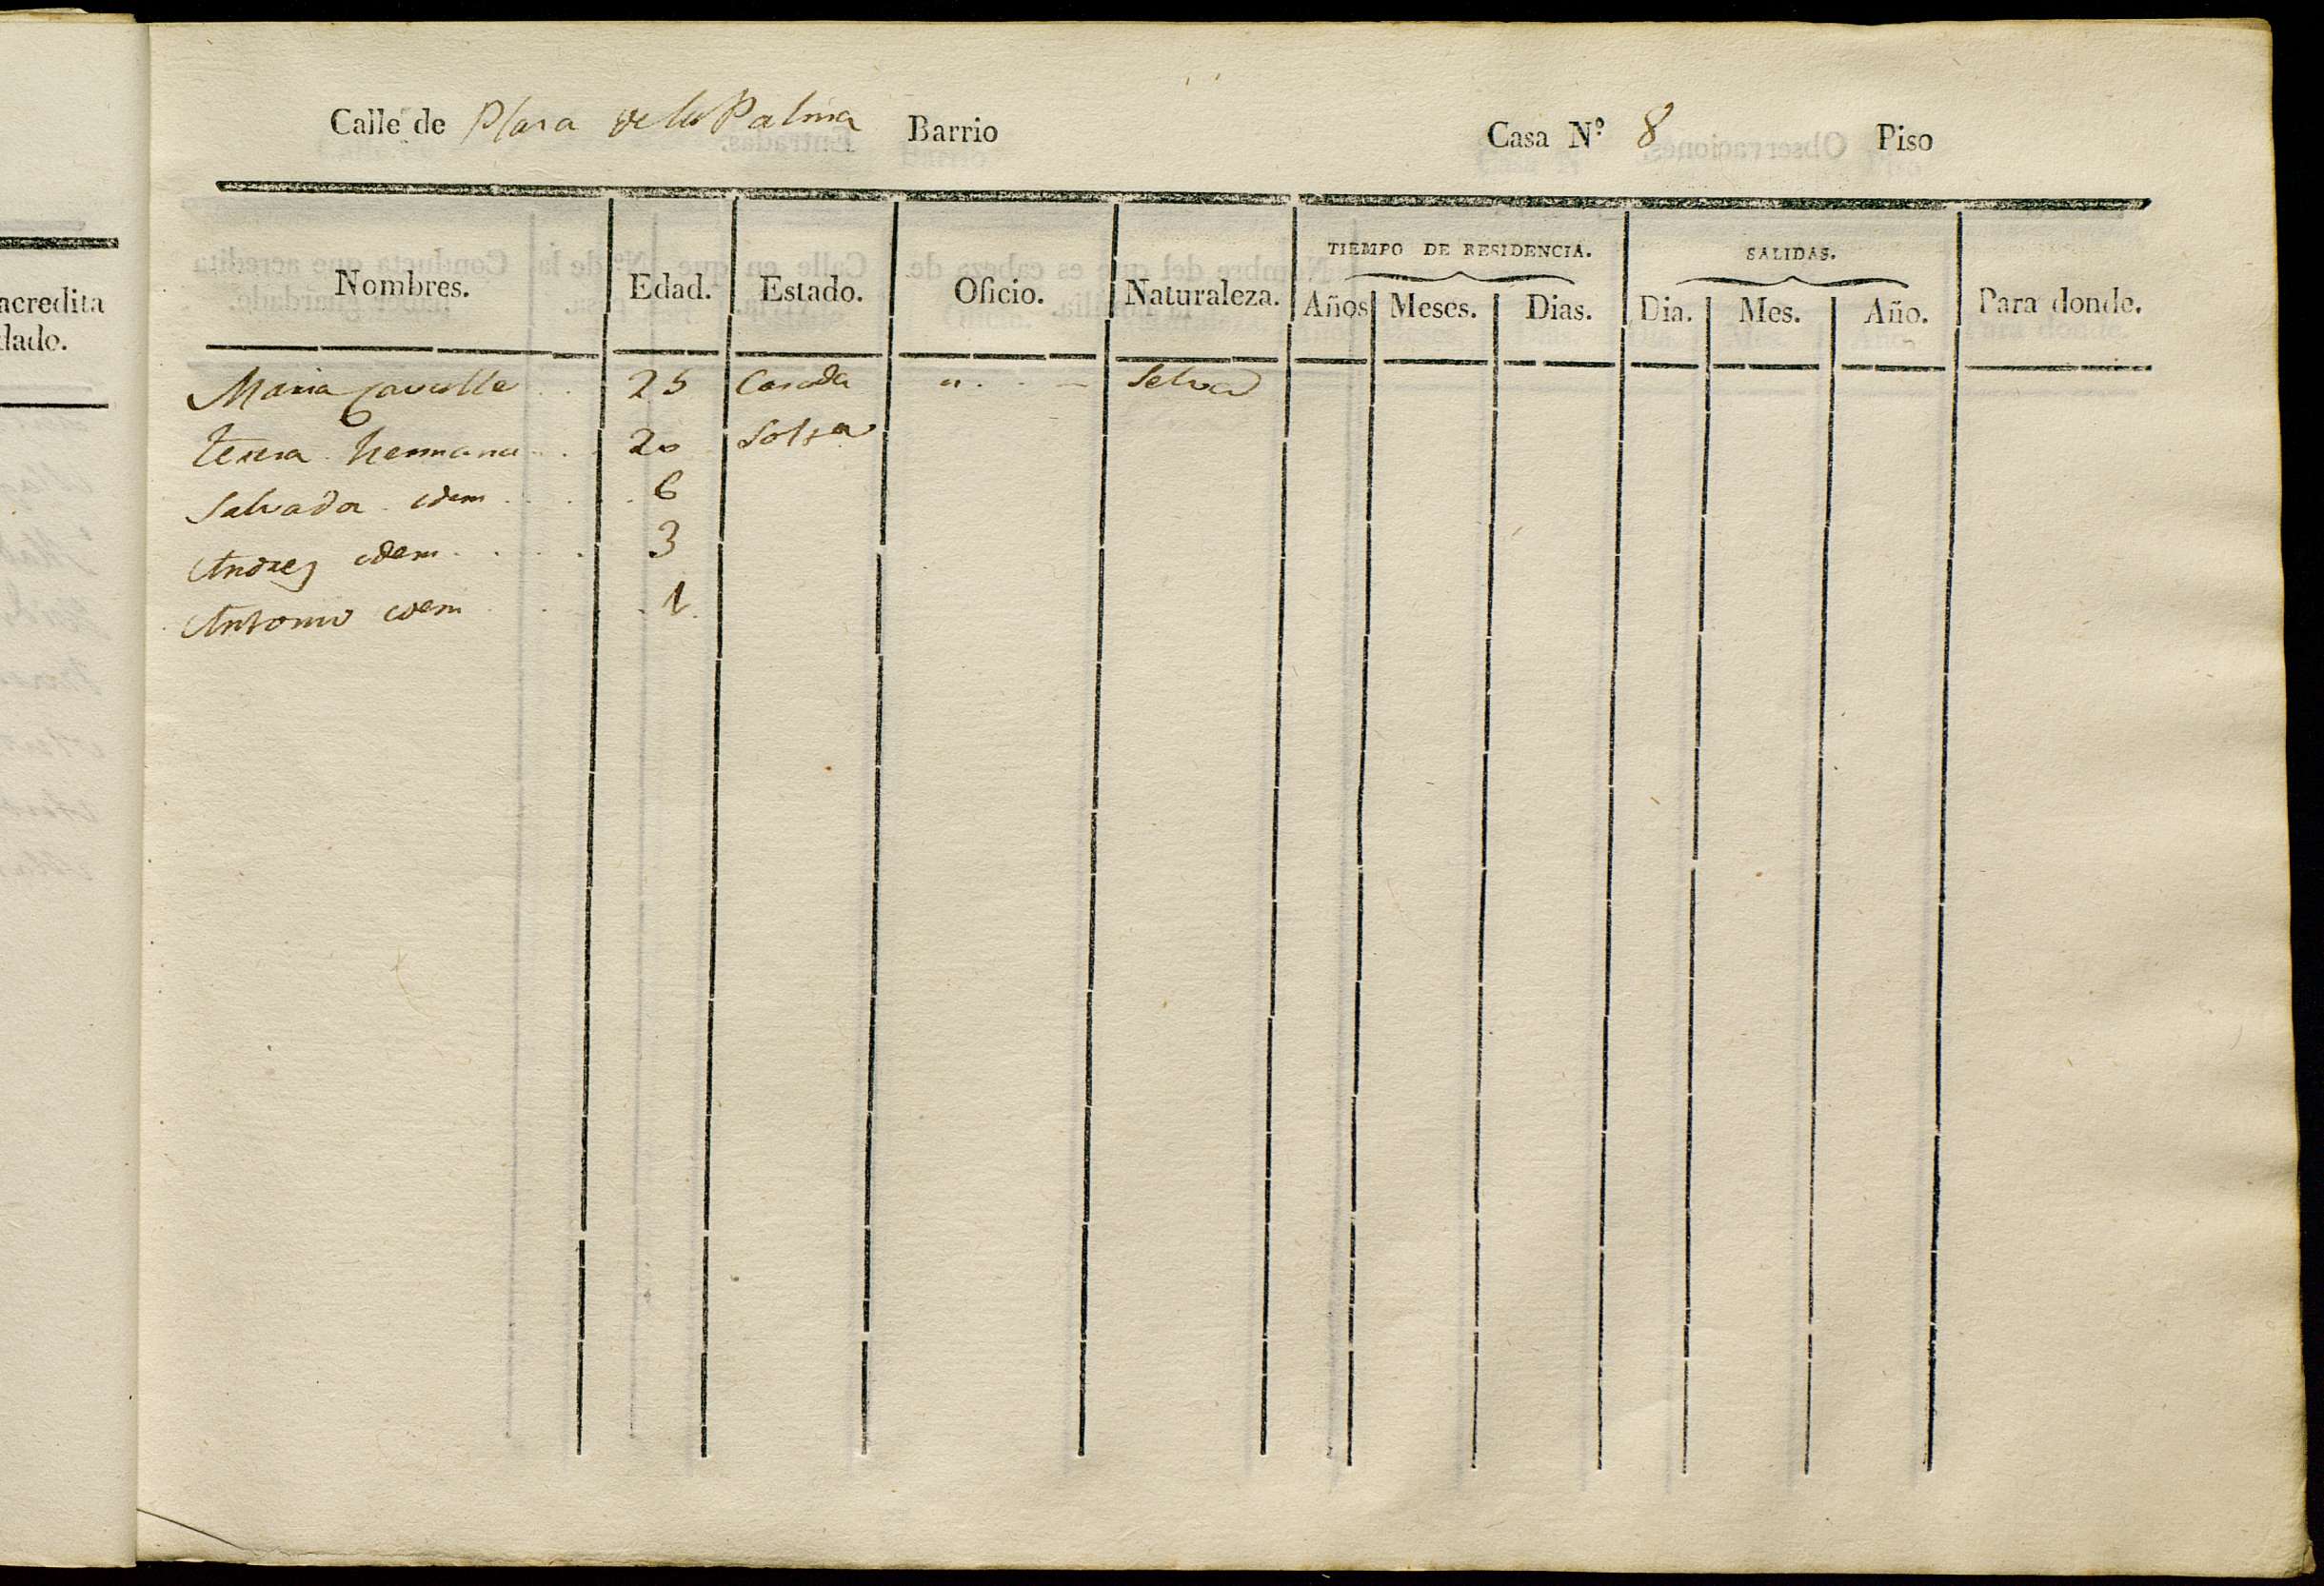 acredita
dado.
Calle de Plasa de la Palma Barrio Casa Nº 8 Piso
TIEMPO DE RESIDENCIA. SALIDAS.
Nombres. Edad. Estado. Oficio. Naturaleza. Años Meses. Dias. Dia. Mes. Año. Para donde.
Maria 25 Casada " Selva
teresa hermana 20 Soltera
Salvada idem 6
Andres idem 3
Antonio idem 1